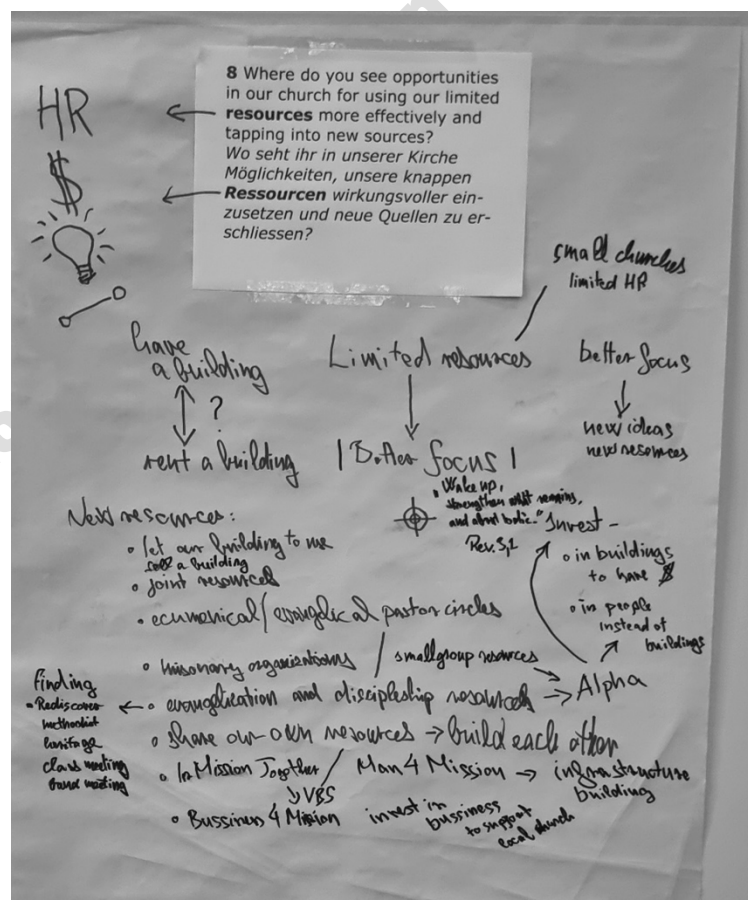 8 Where do you see opportunities
in our church for using our limited
resources more effectively and
tapping into new sources?
Wo seht ihr in unserer Kirche
Möglichkeiten, unsere knappen
Ressourcen wirkungsvoller ein-
zusetzen und neue Quellen zu er-
schliessen?
HR
$
small churches
limited HR
have
a building
?
rent a building
Limited resources
Better focus
better focus
new ideas
new resources
"Wake up,
strengthen what remains,
and about to die."
Rev. 3,2
New resources:
• let our building to use
sell a building
• joint resources
• ecumenical/evanglical pastor circles
• missionary organizations / smallgroup resources
• evanglication and discipleship resources → Alpha
• share our own resources → build each other
• In Mission Together / Man 4 Mission → infrastructure
building
VBS
• Bussiness 4 Mission invest in
bussiness
to support
local church
Invest -
• in buildings
to have $
• in people
instead of
buildings
Finding
• Rediscover
methodist
heritage
class meeting
band meeting